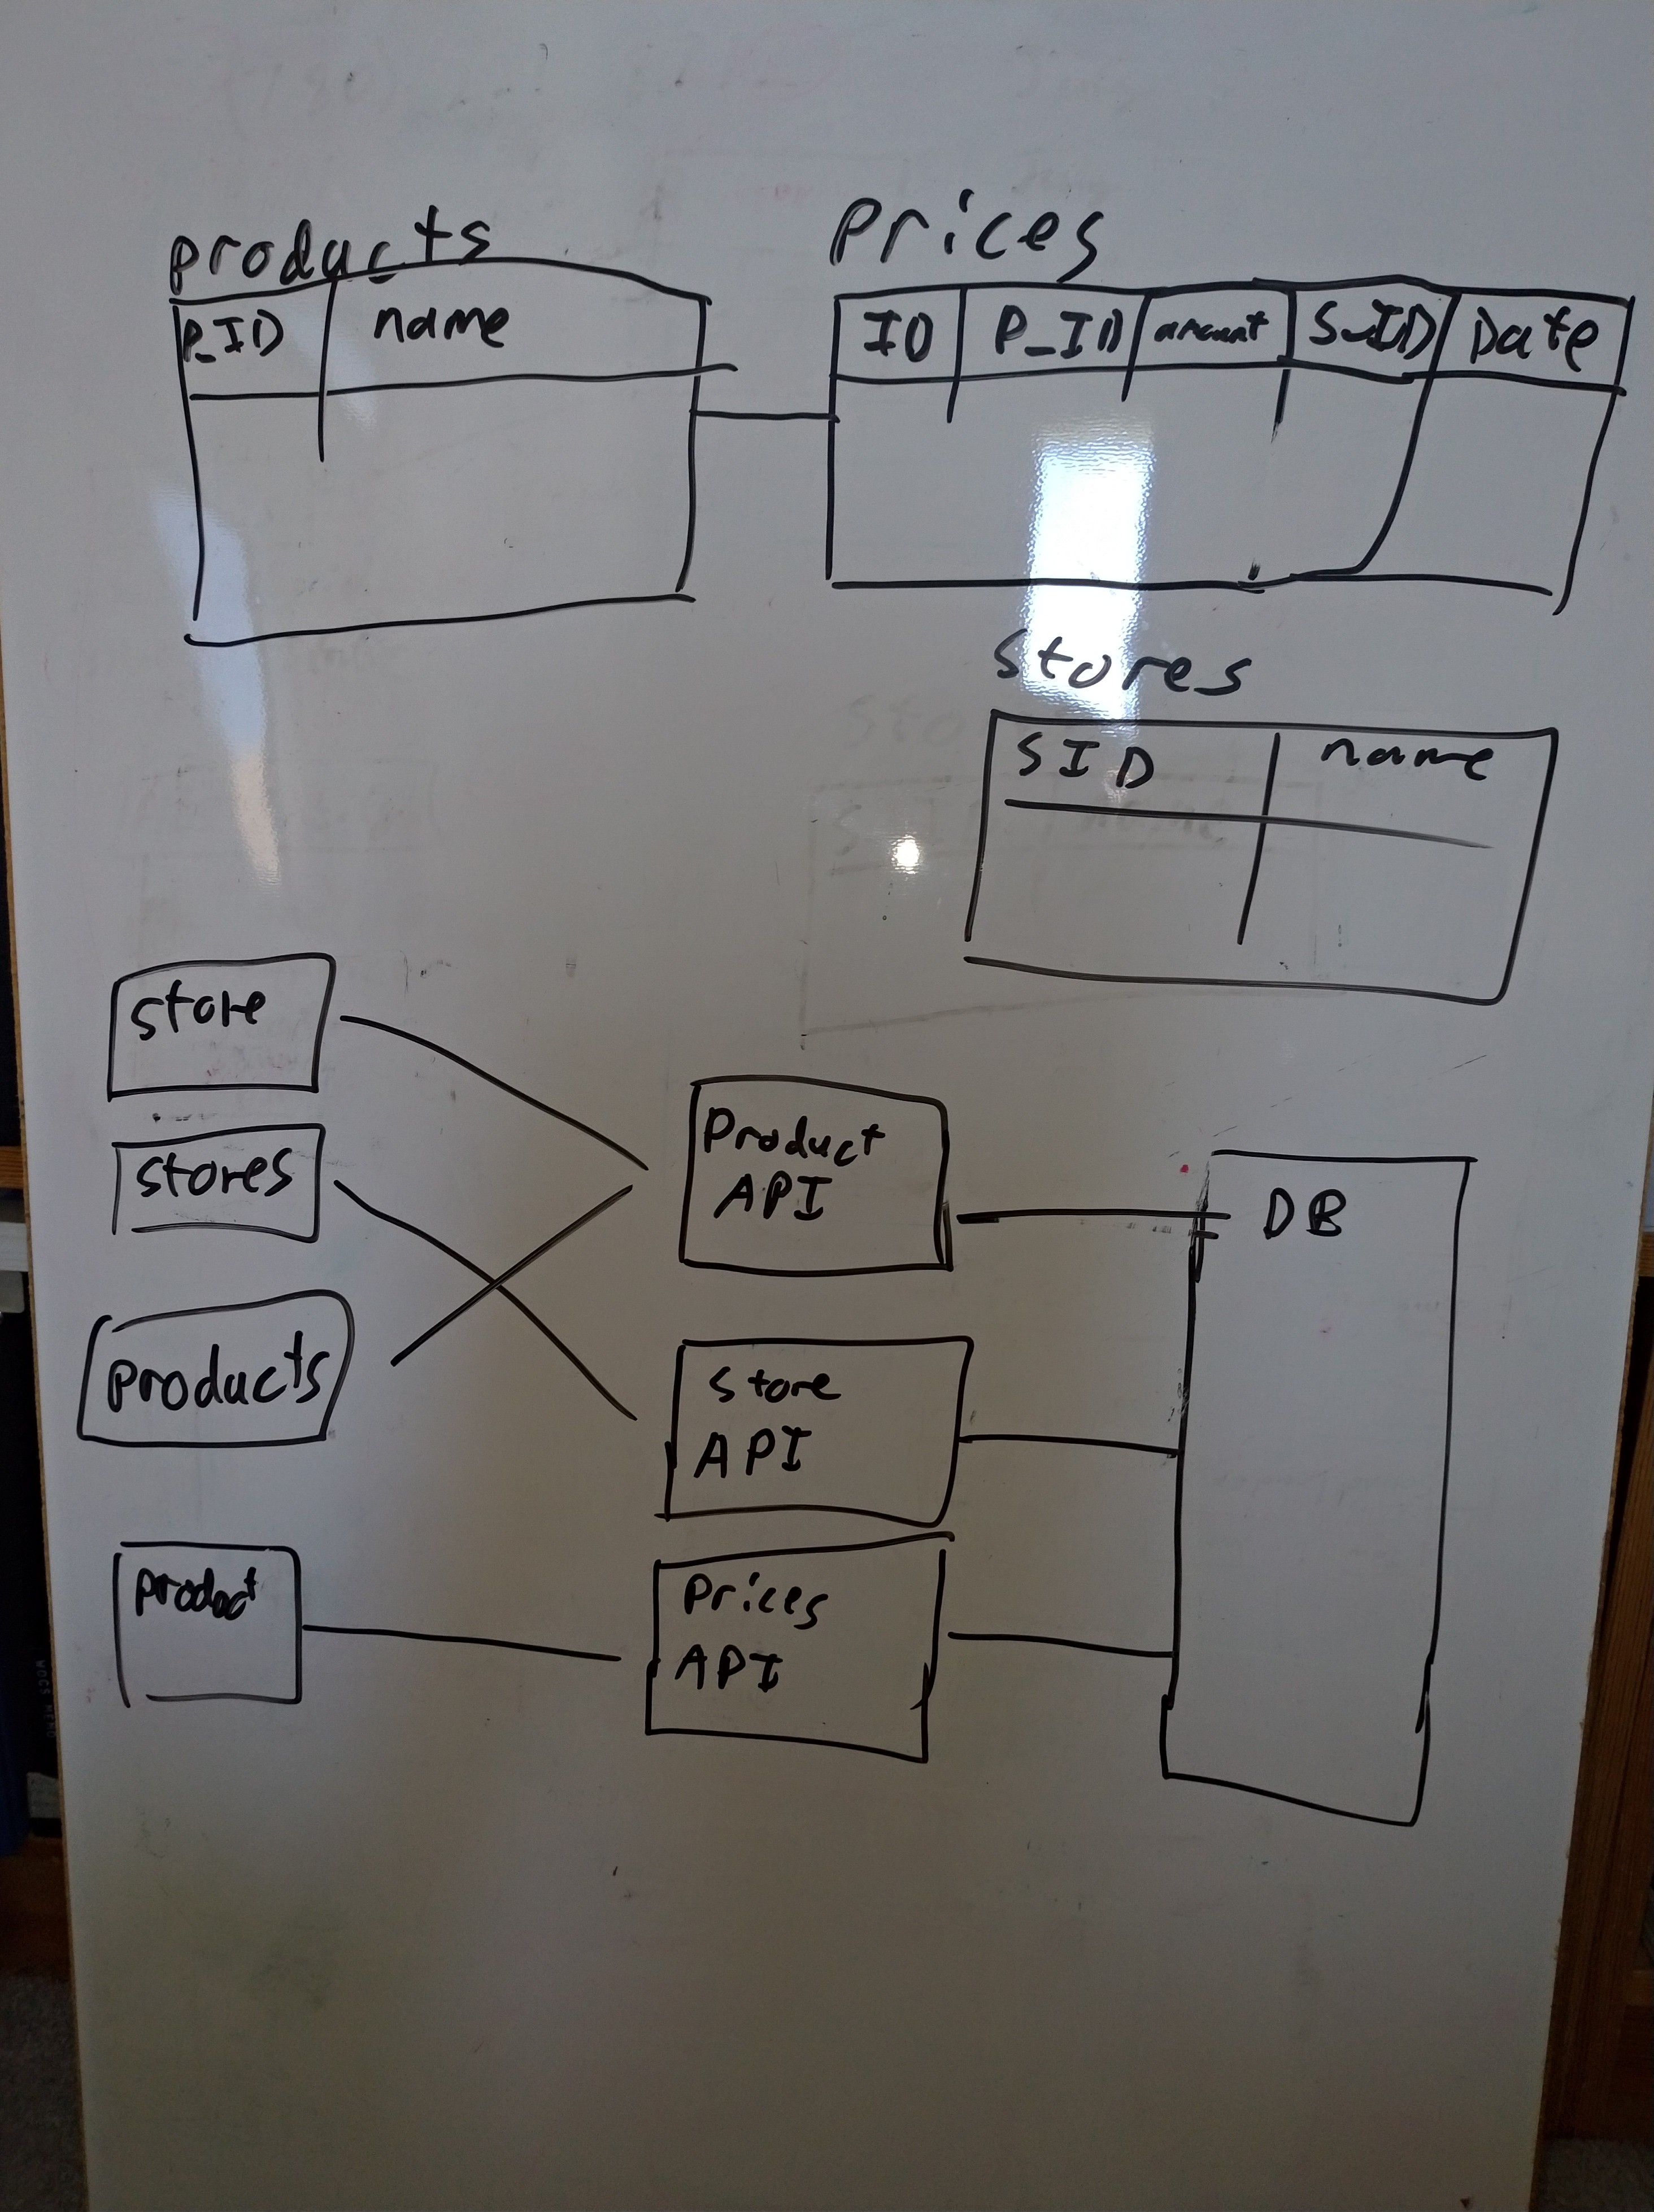 products
P_ID name
Prices
ID P_ID amount S_ID Date
Stores
SID name
store
stores
products
product
Product
API
Store
API
Prices
API
DB